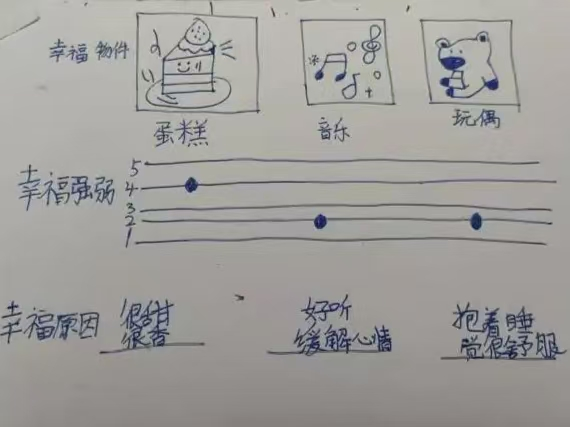 幸福物件
蛋糕
音乐
玩偶
幸福强弱
5
4
3
2
1
幸福原因
很甜
很香
好听
缓解心情
抱着睡
觉很舒服